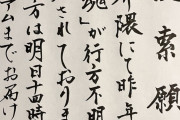 捜索願
界隈にて昨年
魂」が行方不明
されておりま
方は明日十四時
アムまでお届け